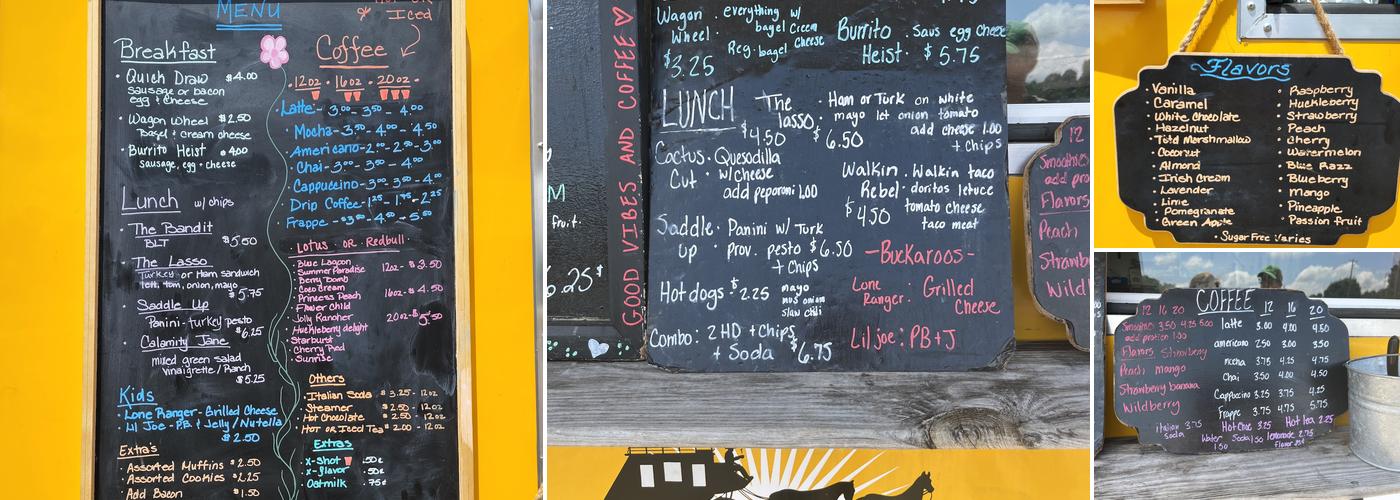 MENU
Iced
Breakfast
Quick Draw $4.00
sausage or bacon
egg & cheese
Wagon Wheel $2.50
Bagel & cream cheese
Burrito Heist • 4.00
Sausage, egg • cheese
Lunch w/ chips
The Bandit
BLT $5.50
The Lasso
Turkey or Ham sandwich
lett, tom, onion, mayo
$5.75
Saddle Up
Panini - turkey pesto
$6.25
Calamity Jane
mixed green salad
vinaigrette / Ranch
$5.25
Kids
Lone Ranger - Grilled Cheese
Lil Joe - P.B. & Jelly / Nutella
$2.50
Extra's
Assorted Muffins $2.50
Assorted Cookies $2.25
Add Bacon $1.50
Coffee
12oz • 16oz • 20oz
Latte - 3.00 - 3.50 - 4.00
Mocha - 3.50 - 4.00 - 4.50
Americano - 2.00 - 2.50 - 3.00
Chai - 3.00 - 3.50 - 4.00
Cappuccino - 3.00 - 3.50 - 4.00
Drip Coffee - 1.25 - 1.75 - 2.25
Frappe - $3.50 - 4.50 - 5.50
Lotus • OR • Redbull
Blue Lagoon
Summer Paradise 12oz - $3.50
Berry Bomb
Coco Cream
Princess Peach 16oz - $4.50
Flower Child
Jolly Rancher 20oz - $5.50
Huckleberry delight
Starburst
Cherry Pied
Sunrise
Others
Italian Soda $3.25 - 12oz
Steamer $2.50 - 12oz
Hot Chocolate $2.50 - 12oz
HOT OR Iced Tea $2.00 - 12oz
Extras
X-Shot .50¢
X-flavor .50¢
Oatmilk .75¢
M
fruit.
6.25
GOOD VIBES AND COFFEE
Wagon Wheel • everything w/ bagel Cream
Reg. bagel Cheese
$3.25
Burrito Heist • Saus egg cheese
$5.75
LUNCH
The lasso • Ham or Turk on white
mayo let onion tomato
$4.50 $6.50 add cheese 1.00
+ chips
Cactus Cut • Quesadilla
w/cheese
add peparoni 1.00
Walkin Rebel • Walkin taco
doritos letuce
tomato cheese
taco meat
$4.50
Saddle up • Panini w/ Turk
prov. pesto $6.50
+ Chips
-Buckaroos-
Hot dogs • $2.25 mayo
mus onion
slaw chili
Lone Ranger: Grilled Cheese
Combo: 2 HD + Chips
+ Soda $6.75
Lil joe: PB+J
12
Smoothies
add pro
Flavors
Peach
Strawb
Wild
Flavors
Vanilla
Caramel
White Chocolate
Hazelnut
Tstd Marshmallow
Coconut
Almond
Irish Cream
Lavender
Lime
Pomegranate
Green Apple
Raspberry
Huckleberry
Strawberry
Peach
Cherry
Watermelon
Blue Razz
Blueberry
Mango
Pineapple
Passion fruit
Sugar Free Varies
COFFEE 12 16 20
12 16 20
Smoothies 3.50 4.25 5.00
add protien 1.00
Flavors Strawberry
Peach mango
Strawberry banana
Wildberry
latte 3.00 4.00 4.50
americano 2.50 3.00 3.50
mocha 3.75 4.25 4.75
Chai 3.50 4.00 4.50
Cappuccino 3.25 3.75 4.25
Frappe 3.75 4.75 5.75
italian soda 3.75
Hot Choc 3.25
Hot tea 2.25
Water 1.50
Soda 1.50
lemonade 2.75
Flavor .25